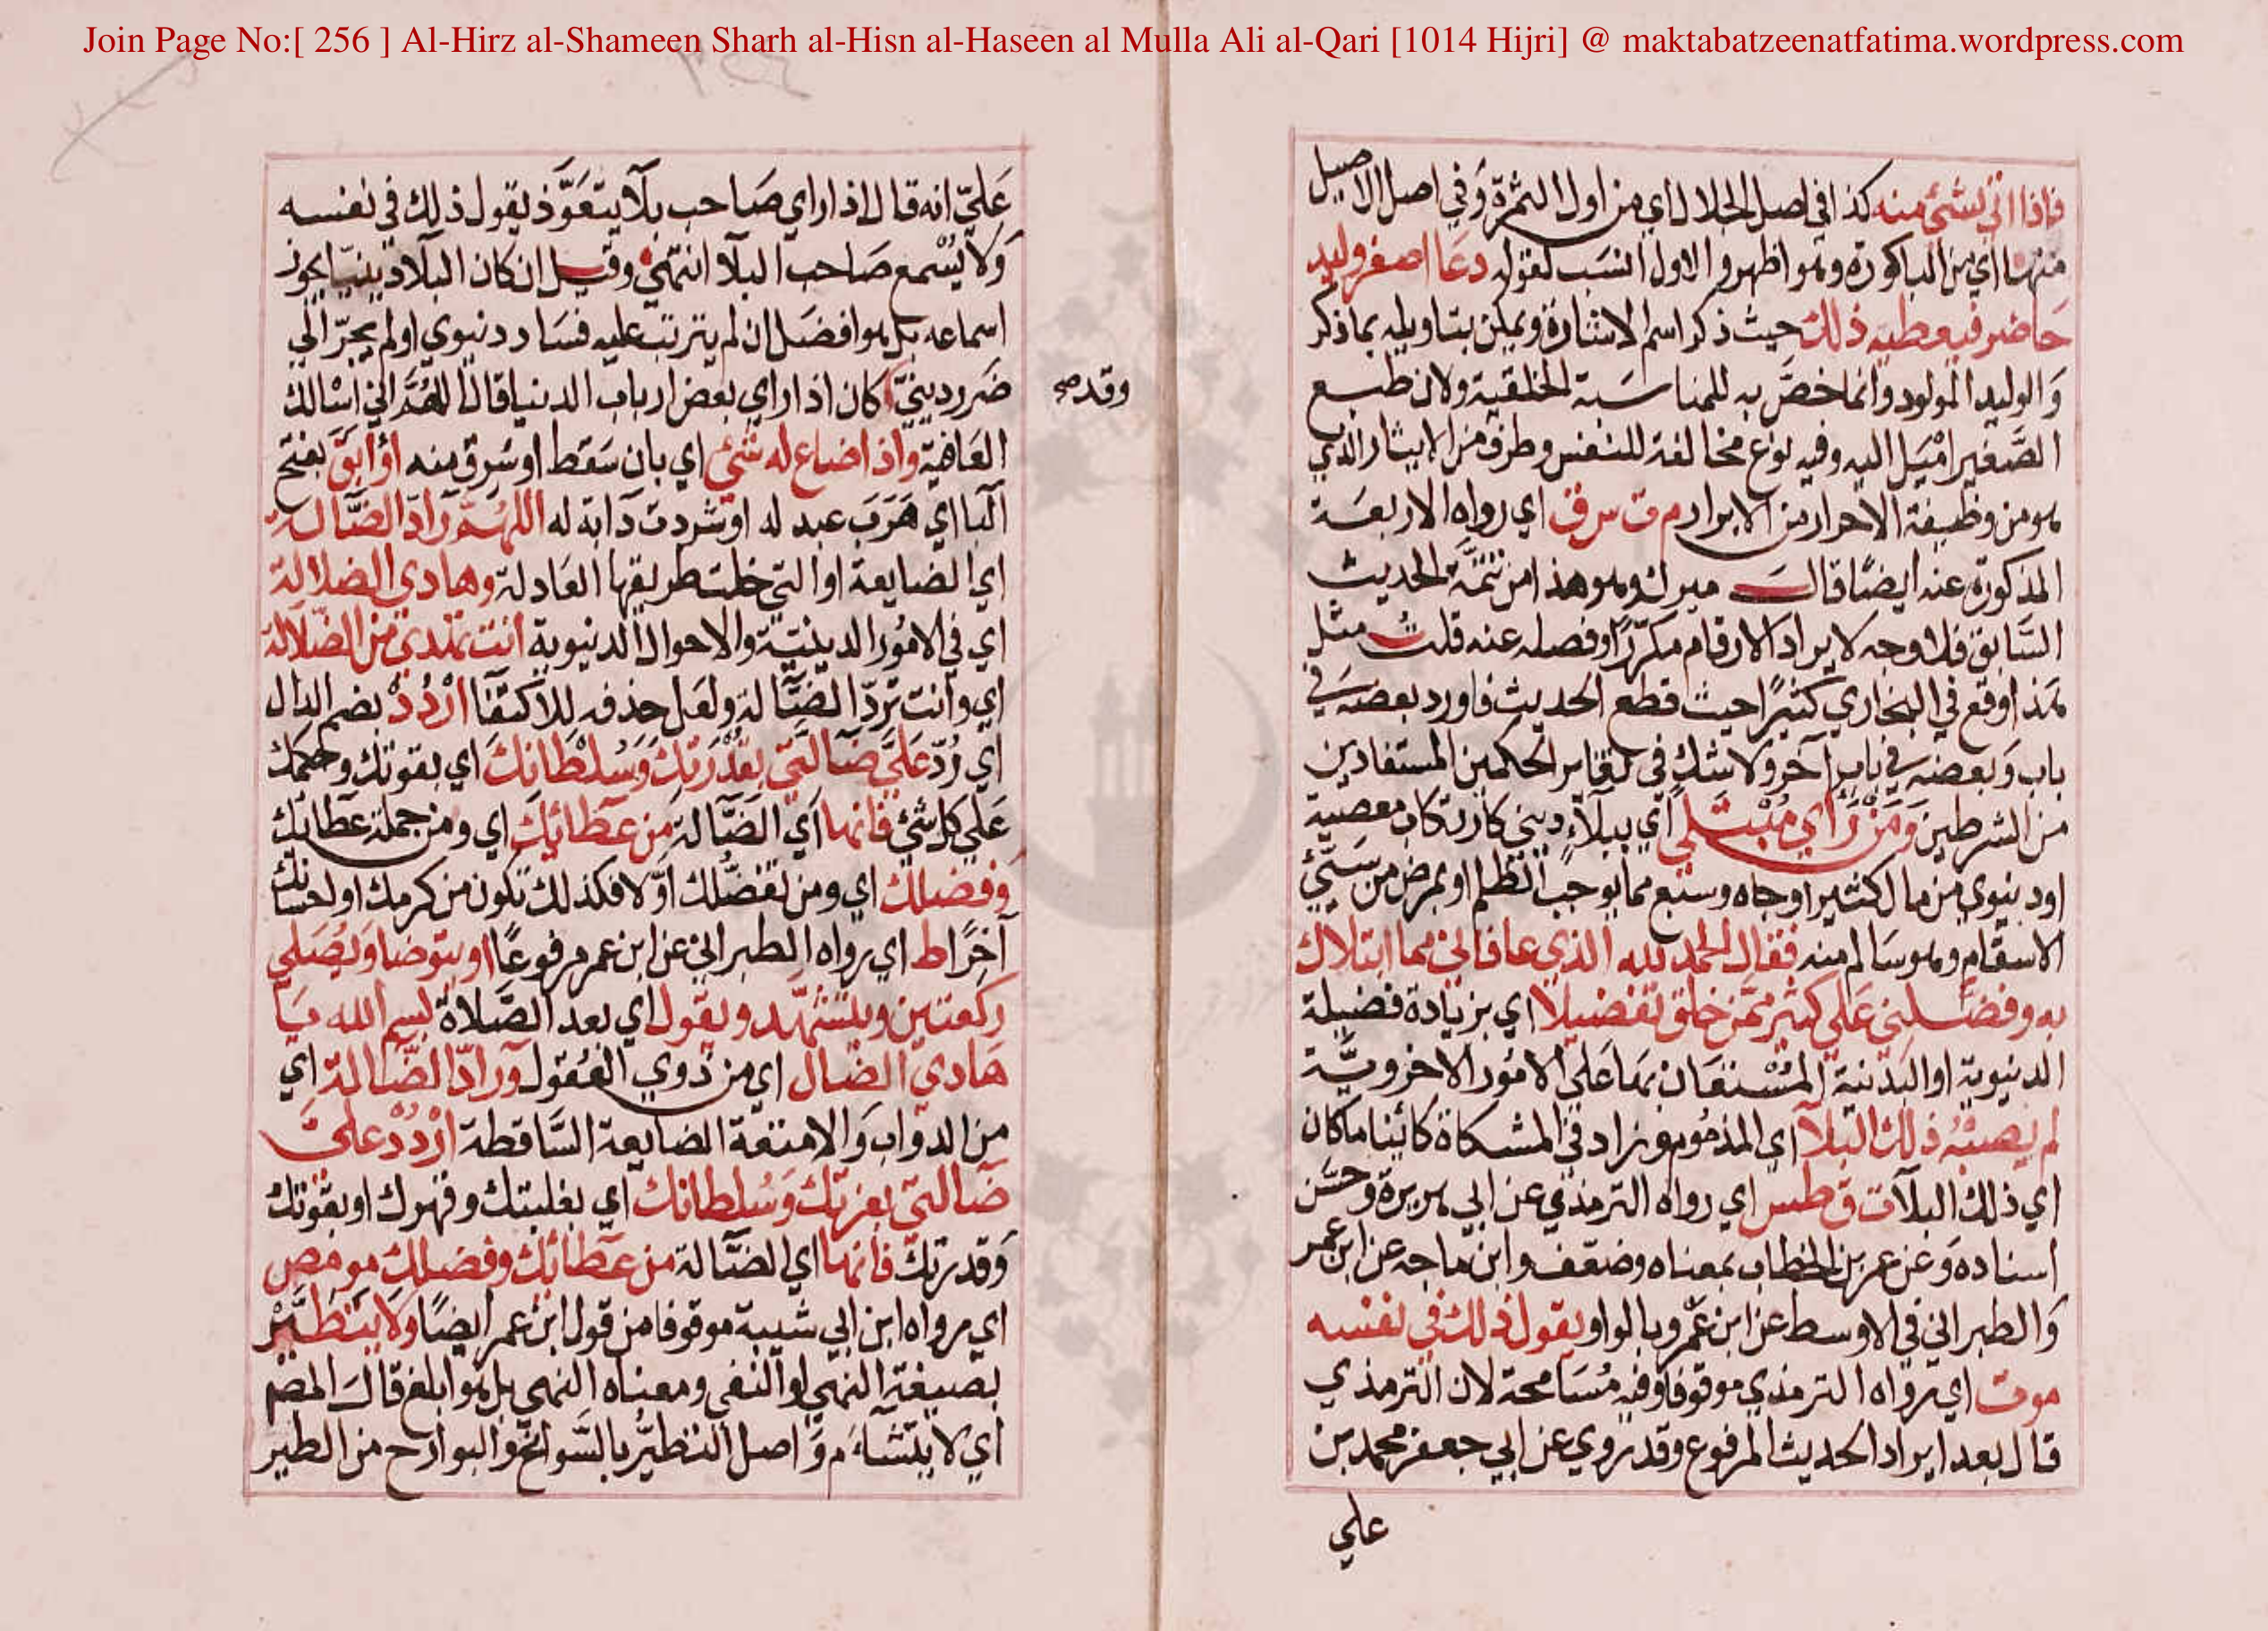 Join Page No:[ 256 ] Al-Hirz al-Shameen Sharh al-Hisn al-Haseen al Mulla Ali al-Qari [1014 Hijri] @ maktabatzeenatfatima.wordpress.com
فاذا اتي بشئ منه كذا في اصل الجلال اي من اول الثمرة وفي اصل الاصيل
منها اي من الباكورة وهو اظهر والاول انسب لقوله دعا اصغر وليد
حاضر فيعطيه ذلك حيث ذكر اسم الاشارة ويمكن بتاويله بما ذكر
والوليد المولود وانما خص به للمناسبة الخلقية ولان طبع
الصغير اميل اليه وفيه نوع مخالفة للنفس وطرف من الايثار الذي
هو من وظيفة الاحرار من الابرار م ت س ق اي رواه الاربعة
المذكورة عنه ايضا قال ميرك وهو هذا من تتمة الحديث
السابق فلا وجه لايراد الارقام مكررا وفصله عنه قلت مثل
هذا وقع في البخاري كثيرا حيث قطع الحديث فاورد بعضه في
باب وبعضه في باب آخر ولا شك في تغاير الحكمين المستفادين
من الشرطين ومن راي مبتلي اي ببلاء ديني كارتكاب معصية
او دنيوي من مال كثير او جاه وسيع مما يوجب الظلم او بمرض من سيئ
الاسقام وهو سالم منه فقال الحمد لله الذي عافاني مما ابتلاك
به وفضلني علي كثير ممن خلق تفضيلا اي بزيادة فضيلة
الدنيوية او البدنية المستعان بها على الامور الاخروية
لم يصبه ذلك البلآ اي المذموم وزاد في المشكاة كائنا ما كان
اي ذلك البلآ ت ق طس اي رواه الترمذي عن ابي هريرة وحسن
اسناده وعن عمر بن الخطاب بمعناه وضعف وابن ماجه عن ابن عمر
والطبراني في الاوسط عن ابن عمر وبالواو يقول ذلك في نفسه
مو ت اي رواه الترمذي موقوفا وفيه مسامحة لان الترمذي
قال بعد ايراد الحديث المرفوع وقد روي عن ابي جعفر محمد بن
علي
علي انه قال اذا راي صاحب بلآ يتعوذ يقول ذلك في نفسه
ولا يسمع صاحب البلآ انتهي وقيل ان كان البلآ دينيا يجوز
اسماعه بل هو افضل ان لم يترتب عليه فساد دنيوي او لم يجر الي
ضرر ديني كان اذا راي بعض ارباب الدنيا قال اللهم اني اسالك
وقد صح
العافية واذا ضاع له شئ اي بان سقط او سرق منه او ابق بفتح
البا اي هرب عبد له او شردت دابة له اللهم راد الضالة
اي الضايعة او التي خلت طريقها العادلة وهادي الضلالة
اي في الامور الدينية والاحوال الدنيوية انت تهدي من الضلالة
اي وانت ترد الضالة ولعل حذفه للاكتفا اردد بضم الدال
اي رد علي ضالتي بقدرتك وسلطانك اي بقوتك وحكمك
علي كل شئ فانها اي الضالة من عطائك اي ومن جملة عطائك
وفضلك اي ومن تفضلك اولا فكذلك تكون من كرمك او احسانك
آخرا ط اي رواه الطبراني عن ابن عمر مرفوعا او يتوضا ويصلي
ركعتين ويتشهد ويقول اي بعد الصلاة بسم الله يا
هادي الضال اي من ذوي العقول وراد الضالة اي
من الدواب والامتعة الضايعة الساقطة اردد علي
ضالتي بعزتك وسلطانك اي بغلبتك وقهرك او بقوتك
وقدرتك فانها اي الضالة من عطائك وفضلك مو مص
اي رواه ابن ابي شيبة موقوفا من قول ابن عمر ايضا ولا يتطير
بصيغة النهي او النفي ومعناه النهي بل هو ابلغ قال المصم
اي لا يتشاءم واصل التطير بالسوانح والبوارح من الطير